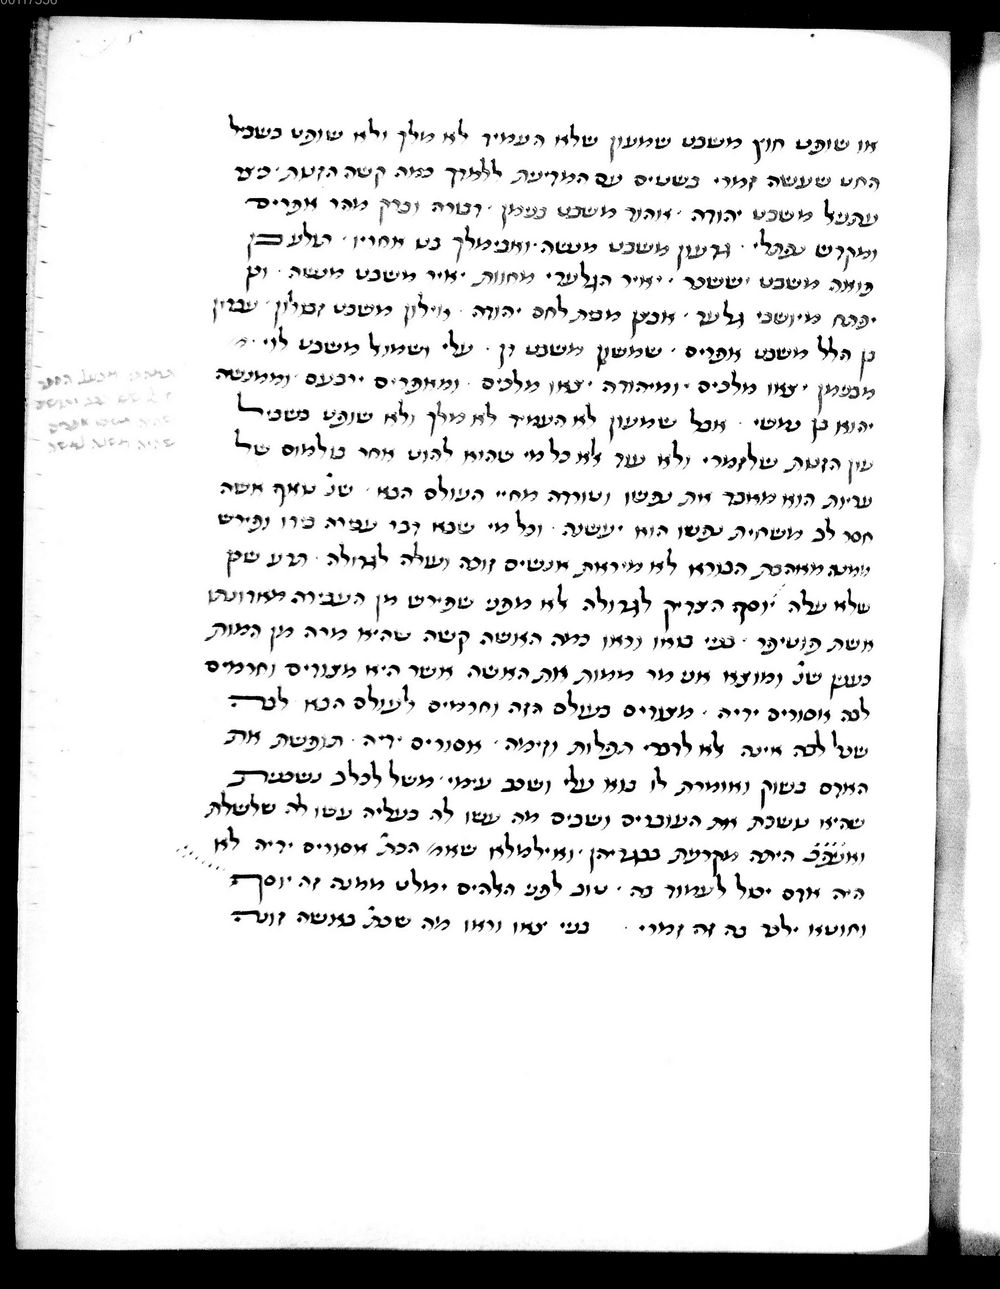 או שופט חוץ משבט שמעון שלא העמיד לא מלך ולא שופט בשביל
החט שעשה זמרי בשטים עם המדינת ללמדך כמה קשה הזנות כיצ
עתניאל משבט יהודה אוהוד משבט בנימן דבורה וברק מהר אפרים
ומקדש נפתלי גדעון משבט מנשה ואבימלך בנו אחריו תולע בן
פואה משבט יששכר יאיר הגלעדי מחוות יאיר משבט מנשה וכן
יפתח מיושבי גלעד אבצן מבית לחם יהודה אילון משבט זבולון עבדון
בן הלל משבט אפרים שמשון משבט דן עלי ושמואל משבט לוי
מבנימן יצאו מלכים ומיהודה יצאו מלכים ומאפרים ירבעם וממנשה
יהוא בן נמשי אבל שמעון לא העמיד לא מלך ולא שופט בשביל
עון הזנות שלזמרי ולא עוד אלא כל מי שהוא להוט אחר בולמוס של
עריות הוא מאבד את נפשו וטורדה מחיי העולם הבא שנ׳ נואף אשה
חסר לב משחית נפשו הוא יעשנה וכל מי שבא דבר עבירה בידו ופירש
ממנה מאהבת הבורא לא מיראת אנשים זוכה ועולה לגדולה תדע שכן
שלא עלה יוסף הצדיק לגדולה לא מפני שפירש מן העבירה מאדונתו
אשת פוטיפר בני בואו וראו כמה האשה קשה שהיא מרה מן המות
כענין שנ׳ ומוצא אני מר ממות את האשה אשר היא מצודים וחרמים
לבה אסורים ידיה מצודים בעולם הזה וחרמים לעולם הבא לבה
שכל לבה אינה אלא לדברי תפלות וזימה אסורים ידיה תופשת את
האדם בשוק ואומרת לו בוא עלי ושכב עימי משל לכלב נשכנית
שהיא נושכת את העוברים ושבים מה עשו לה בעליה עשו לה שלשלת
ואעפ״כ היתה מקרעת בבגדיהן ואילמלא שאמ׳ הכת׳ אסורים ידיה לא
היה אדם יכול לעמוד בה טוב לפני האלהים ימלט ממנה זה יוסף
וחוטא ילכד בה זה זמרי בני צאו וראו מה שכת׳ באשה זונה